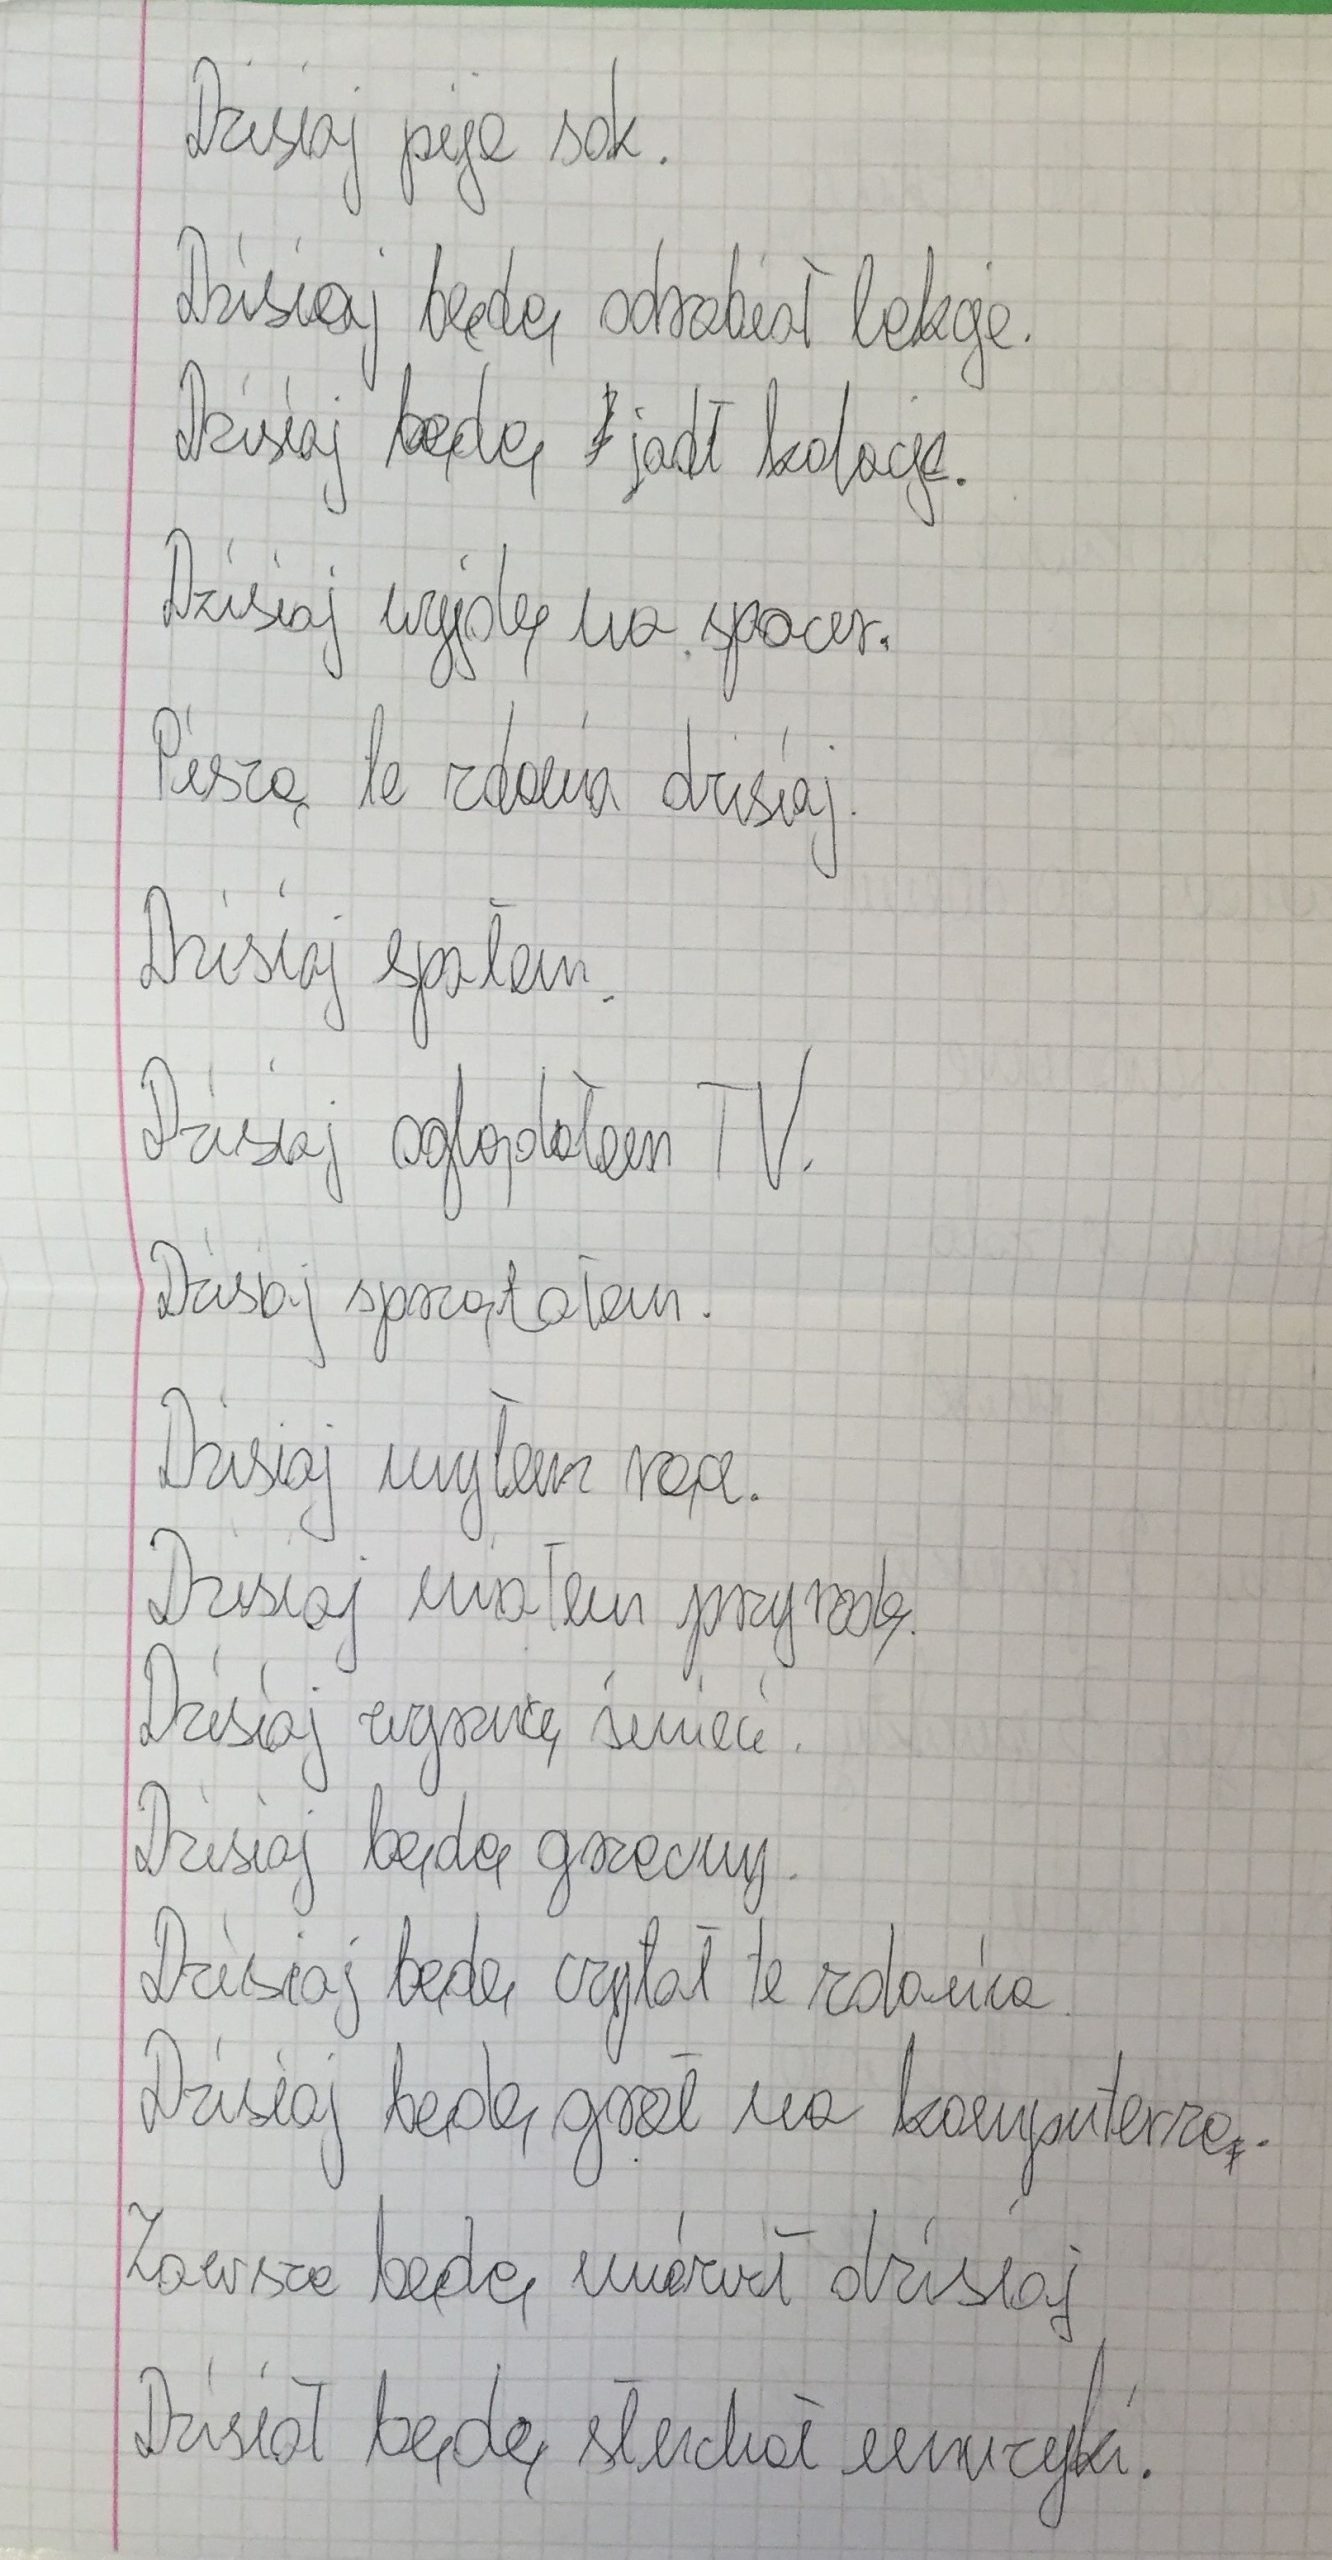 Dzisiaj pije sok.
Dzisiaj będę odrabiał lekcje.
Dzisiaj będę jadł kolację.
Dzisiaj wyjdę na spacer.
Piszą te zdania dzisiaj.
Dzisiaj spałem.
Dzisiaj oglądałem TV.
Dzisiaj sprzątałem.
Dzisiaj myłem ręce.
Dzisiaj miałem przyrodę.
Dzisiaj wyrzucę śmieci.
Dzisiaj będę grzeczny.
Dzisiaj będę czytał te zdania
Dzisiaj będę grał na komputerze.
Zawsze będę mówił dzisiaj
Dzisiał będę słuchał muzyki.